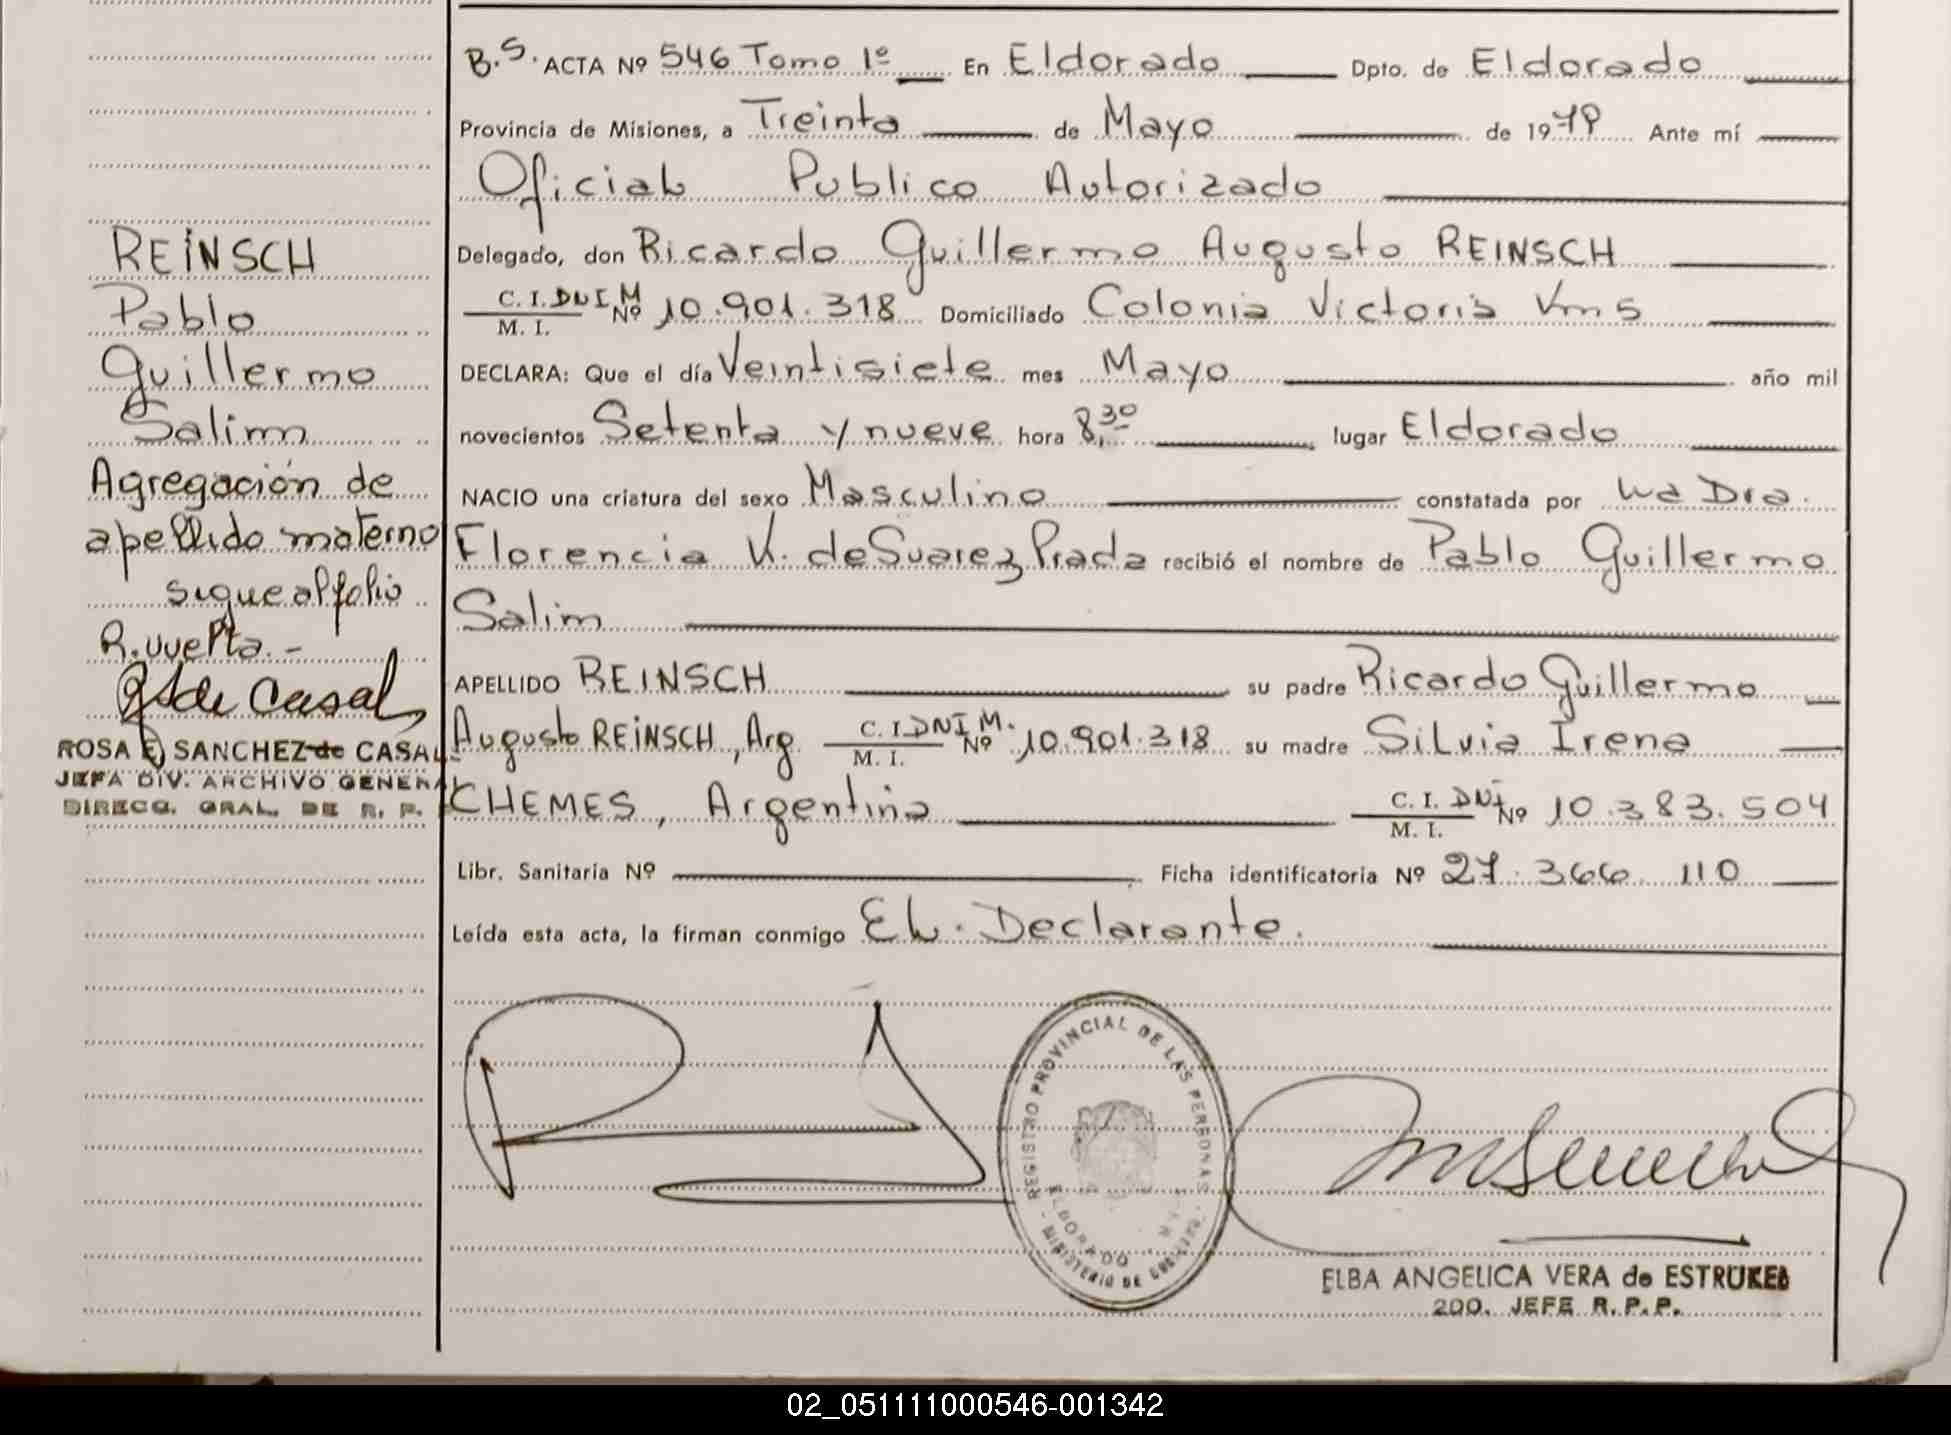 B.S. ACTA Nº 546 Tomo 1º En Eldorado Dpto. de Eldorado
Provincia de Misiones, a Treinta de Mayo de 1979 Ante mí
Oficial Publico Autorizado
Delegado, don Ricardo Guillermo Augusto REINSCH
C. I. DNI M Nº 10.901.318 Domiciliado Colonia Victoria Vms
M. I.
DECLARA: Que el día Veintisiete mes Mayo año mil
novecientos Setenta y nueve hora 8,30 lugar Eldorado
NACIO una criatura del sexo Masculino constatada por La Dra.
Florencia K. de Suarez Prada recibió el nombre de Pablo Guillermo
Salim
APELLIDO REINSCH su padre Ricardo Guillermo
Augusto REINSCH, Arg. C. I. DNI M. Nº 10.901.318 su madre Silvia Irene
M. I.
CHEMES, Argentina C. I. DNI Nº 10.383.504
M. I.
Libr. Sanitaria Nº Ficha identificatoria Nº 27.366.110
Leída esta acta, la firman conmigo El. Declarante.
REINSCH
Pablo
Guillermo
Salim
Agregación de
apellido materno
sigue al folio
R. vuelta.-
de Casal
ROSA E. SANCHEZ de CASAL
JEFA DIV. ARCHIVO GENERAL
DIRECC. GRAL. DE R. P. P.
REGISTRO PROVINCIAL DE LAS PERSONAS
ELDORADO
MINISTERIO DE GOBIERNO
ELBA ANGELICA VERA de ESTRUKEL
2DO. JEFE R. P. P.
02_051111000546-001342